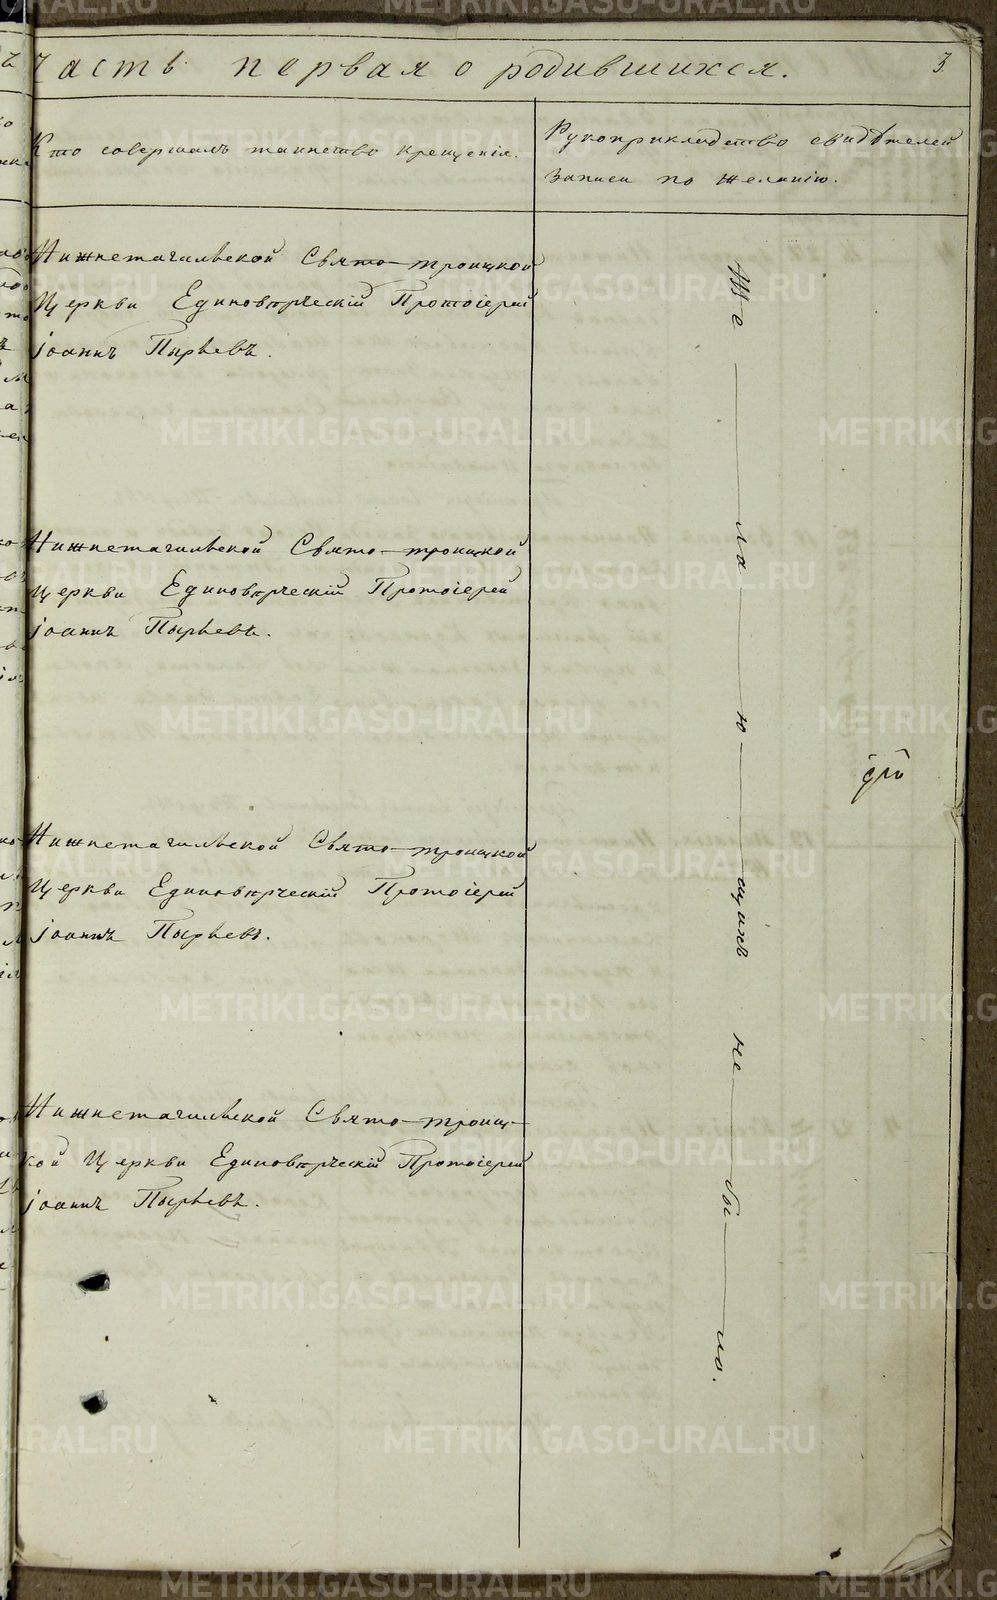 Часть первая о родившихся.
3
Кто совершалъ таинство крещенія.
Рукоприкладство свидѣтелей
записи по желанію.
Нижнетагильской Свято-троицкой
Церкви Единовѣрческій Протоіерей
Іоаннъ Пырьевъ.
Нижнетагильской Свято-троицкой
Церкви Единовѣрческій Протоіерей
Іоаннъ Пырьевъ.
Нижнетагильской Свято-троицкой
Церкви Единовѣрческій Протоіерей
Іоаннъ Пырьевъ.
Нижнетагильской Свято-троиц-
кой Церкви Единовѣрческій Протоіерей
Іоаннъ Пырьевъ.
Же—ла—ю—щихъ не—бы—ло.
METRIKI.GASO-URAL.RU